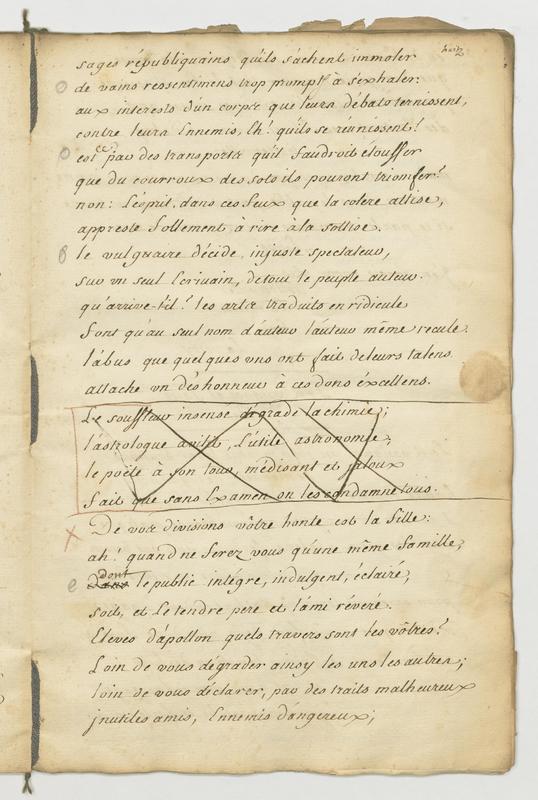 sages républiquains qu'ils sachent immoler
de vains ressentimens trop prompts à s'exhaler:
aux interests d'un corps que leurs débats ternissent,
contre leurs Ennemis, Eh! qu'ils se reunissent!
est ce par des transports qu'il faudroit étouffer
que du courroux des sots ils pouront triomfer?
non: L'esprit, dans ces feux que la colere attise,
appreste follement à rire à la sottise.
le vulguaire décide, injuste spectateur,
sur un seul Ecrivain, de tout le peuple auteur.
qu'arrive-t'il? les arts traduits en ridicule
font qu'au seul nom d'auteur l'auteur même recule.
l'abus que quelques uns ont fait de leurs talens
attache un déshonneur à ces dons éxcellens.
Le souffleur insensé dégrade la chimie;
l'astrologue avilit, L'utile astronomie,
le poëte à son tour, médisant et jaloux
fait que sans Examen on les condamne tous.
De vos divisions vôtre honte est la fille:
ah! quand ne serez vous qu'une même famille,
dont
Dans le public intégre, indulgent, éclairé,
soit, et Le tendre pere et l'ami révéré.
Eleves d'apollon quels travers sont les vôtres?
Loin de vous dégrader ainsy les uns les autres;
loin de vous déclarer, par des traits malheureux
jnutiles amis, Ennemis dangereux;